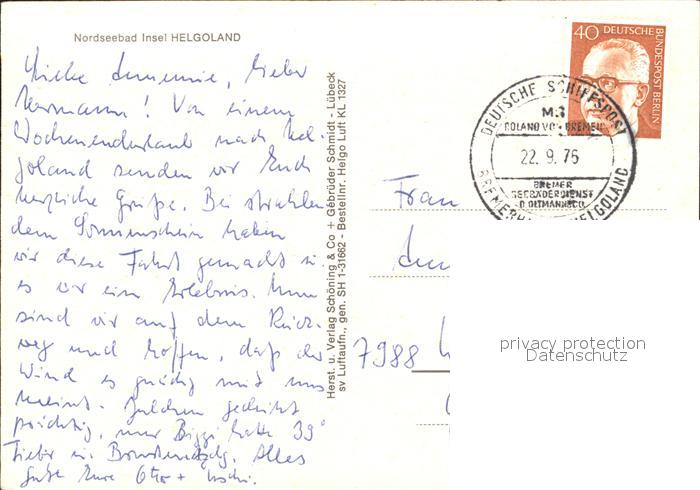 Nordseebad Insel HELGOLAND
Liebe Annemie, lieber
Hermann! Von einem
Wochenendurlaub nach Hel-
goland senden wir Euch
herzliche Grüße. Bei strahlen
dem Sonnenschein haben
wir diese Fahrt gemacht u.
es war ein Erlebnis. Nun
sind wir auf dem Rück-
weg und hoffen, daß der
Wind es gnädig mit uns
meint. gedeiht
prächtig, nur Biggi hatte 39°
Fieber in. Alles
gute Eure Otto + Uschi.
Herst. u. Verlag Schöning & Co + Gebrüder Schmidt - Lübeck
sv Luftaufn., gen. SH 1-31662 - Bestellnr. Helgo Luft KL 1327
40 DEUTSCHE
BUNDESPOST BERLIN
DEUTSCHE SCHIFFSPOST
MS
ROLAND VON BREMEN
22. 9. 76
BREMER
SEEBÄDERDIENST
D.OLTMANN&CO
BREMERHAVEN HELGOLAND
Frau
7988
privacy protection
Datenschutz